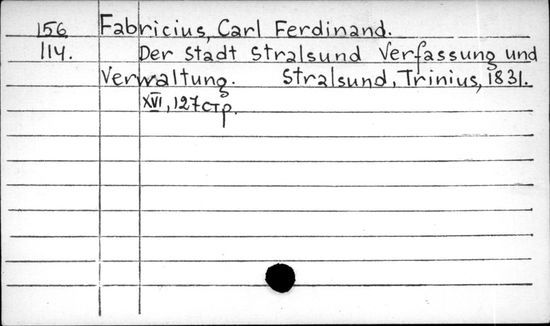 156 Fabricius, Carl Ferdinand.
114. Der Stadt Stralsund Verfassung und
Verwaltung. Stralsund, Trinius, 1831.
XVI, 127 стр.